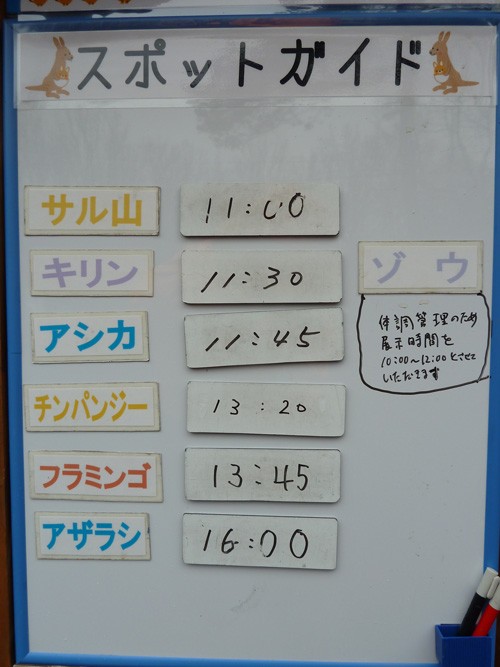 スポットガイド
サル山 11:00
キリン 11:30
アシカ 11:45
チンパンジー 13:20
フラミンゴ 13:45
アザラシ 16:00
ゾウ
体調管理のため
展示時間を
10:00〜12:00とさせて
いただきます